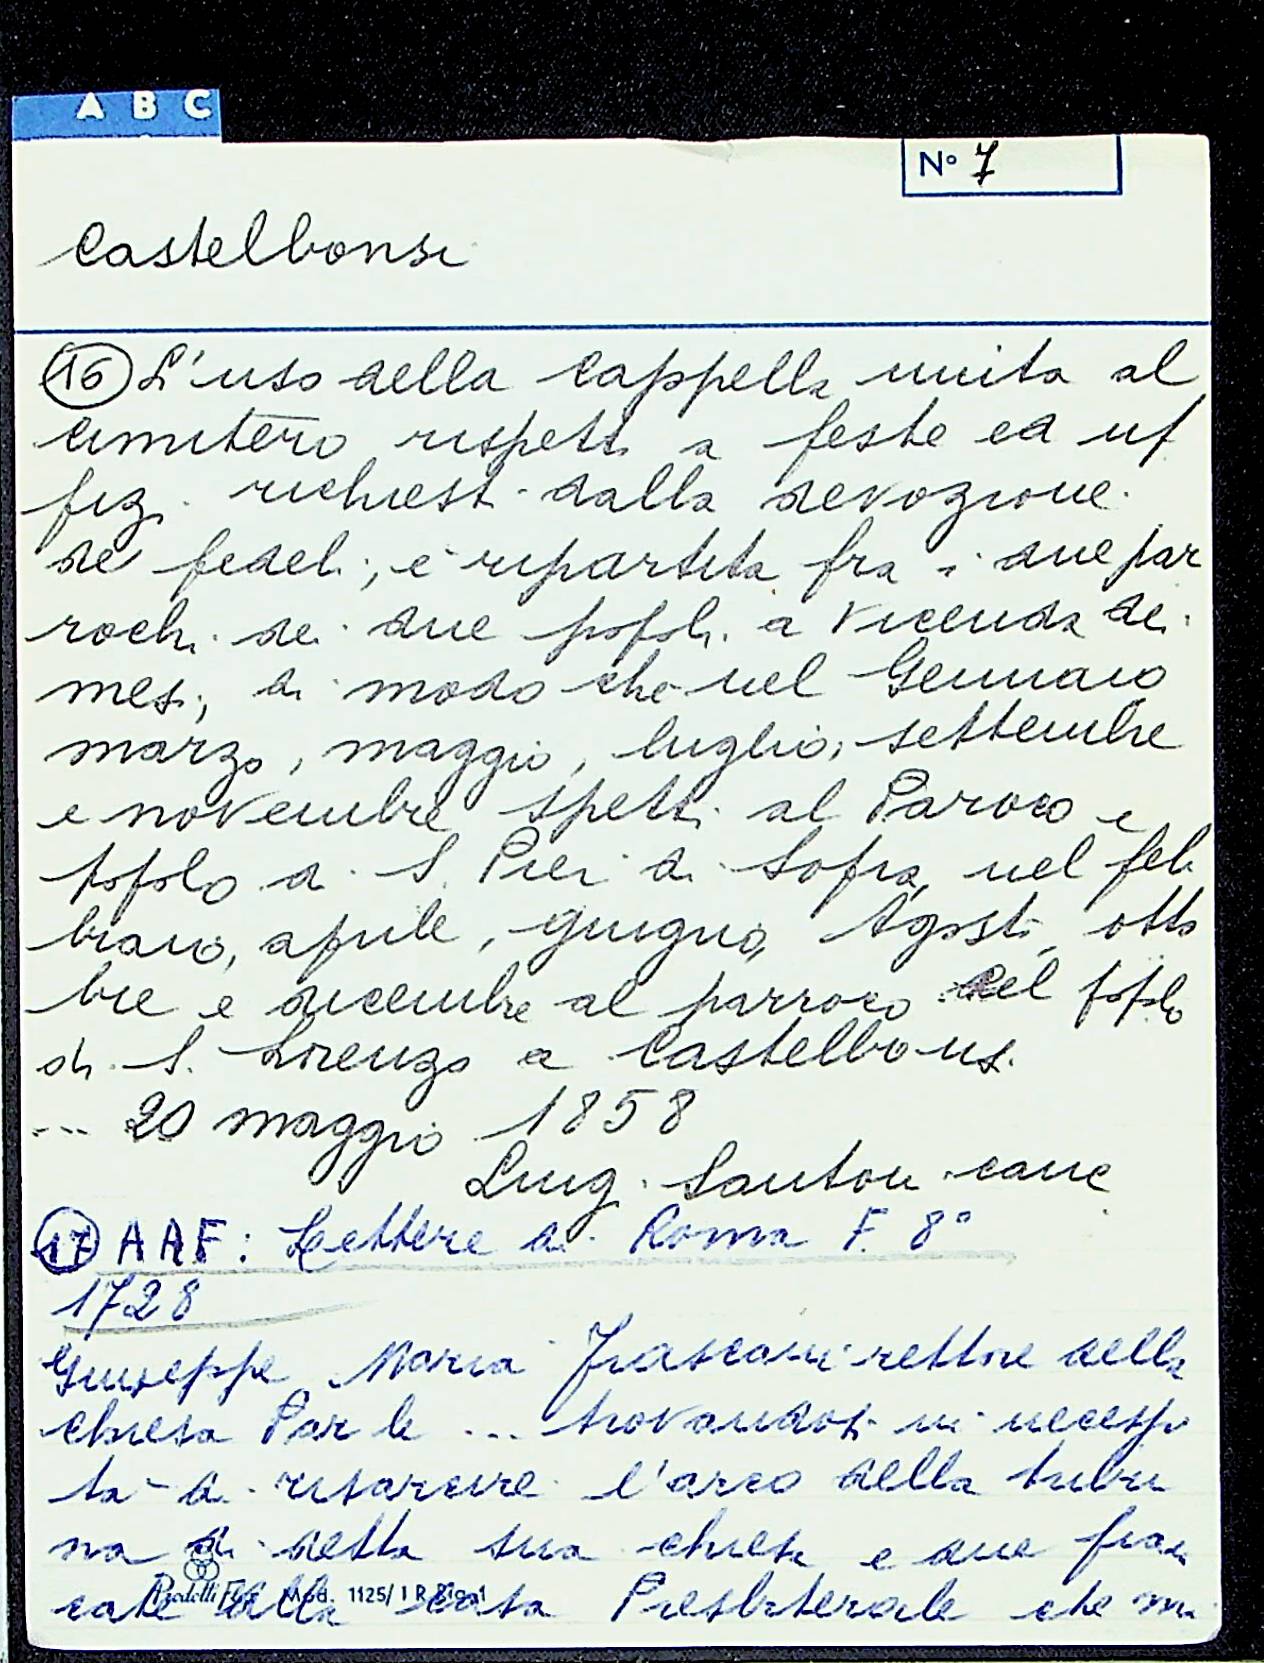 A B C
N° 7
Castelbonsi
16 L'uso della Cappella unita al
cimitero rispetti a feste ed uf
fizi richiesti dalla devozione
dei fedeli, è ripartita fra i due par
rochi dei due popoli a vicenda dei
mesi, di modo che nel Gennaio
marzo, maggio, luglio, settembre
e novembre spetti al Paroco e
popolo di S. Pier di Sopra, nel feb
braio, aprile, giugno, Agosto, otto
bre e dicembre al parroco del popolo
di S. Lorenzo a Castelbonsi.
... 20 maggio 1858
Luigi Santoni canc
17 AAF: Lettere di Roma F. 8°
1728
Giuseppe Maria Frascani rettore della
chiesa Par le ... trovandosi in necessi
tà di risarcire l'arco della tribu
na di detta sua chiesa e due
Mod. 1125/1 R Riga 1
alla casa Presbiterale che mi